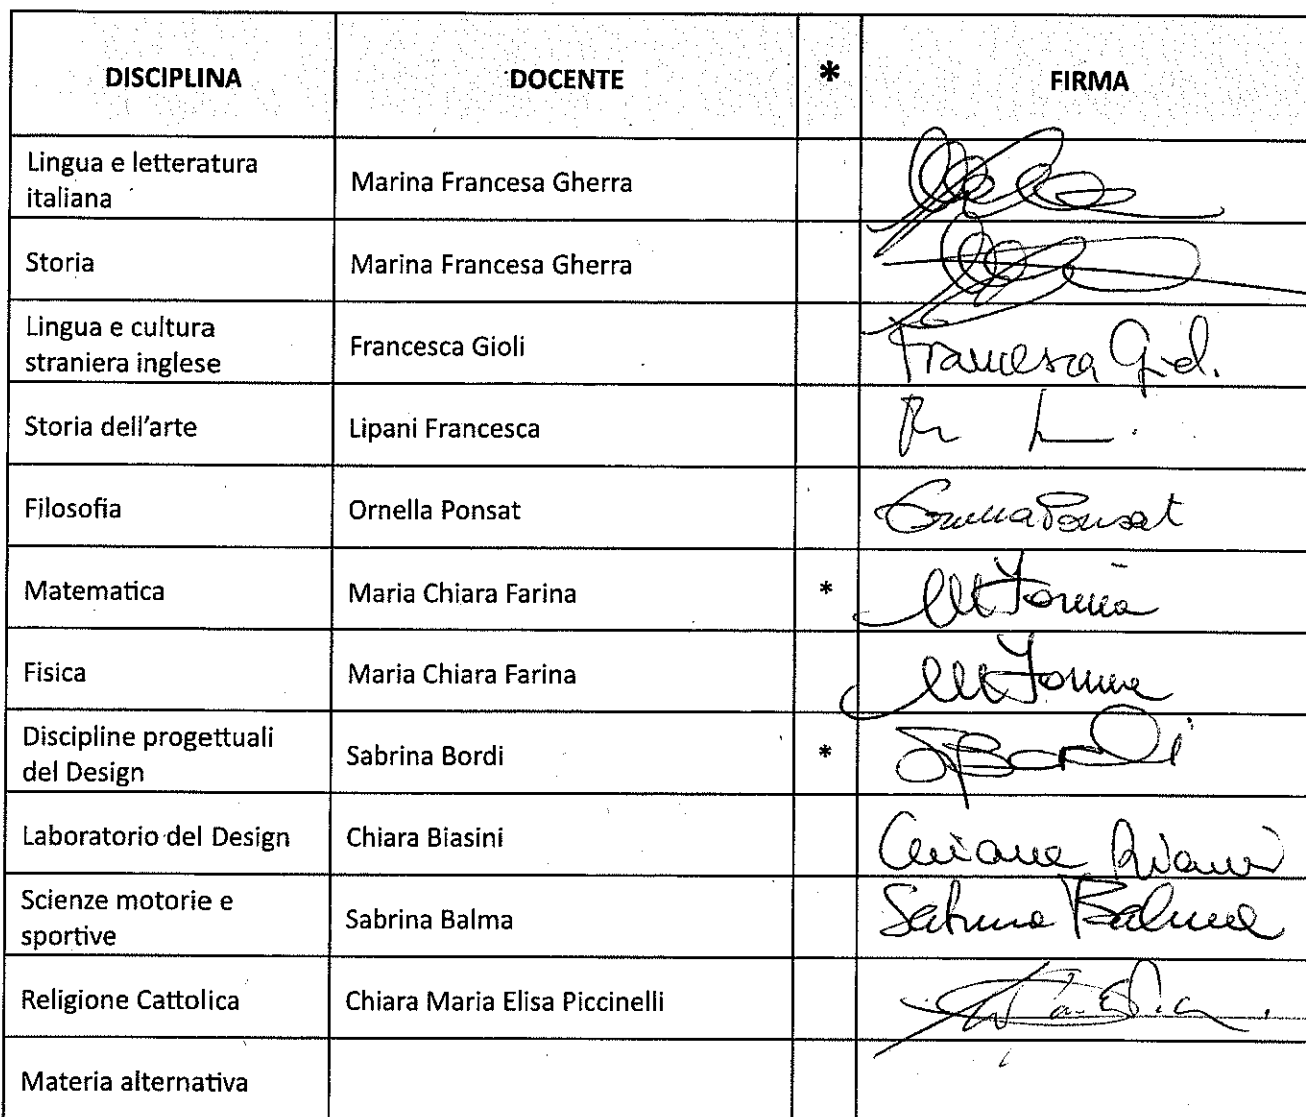 DISCIPLINA DOCENTE * FIRMA
Lingua e letteratura
italiana
Marina Francesa Gherra
Storia Marina Francesa Gherra
Lingua e cultura
straniera inglese
Francesca Gioli Francesca Giol.
Storia dell'arte Lipani Francesca
Filosofia Ornella Ponsat Ornella Ponsat
Matematica Maria Chiara Farina * MCFarina
Fisica Maria Chiara Farina MCFarina
Discipline progettuali
del Design
Sabrina Bordi * SBordi
Laboratorio del Design Chiara Biasini Chiara Biasini
Scienze motorie e
sportive
Sabrina Balma Sabrina Balma
Religione Cattolica Chiara Maria Elisa Piccinelli
Materia alternativa